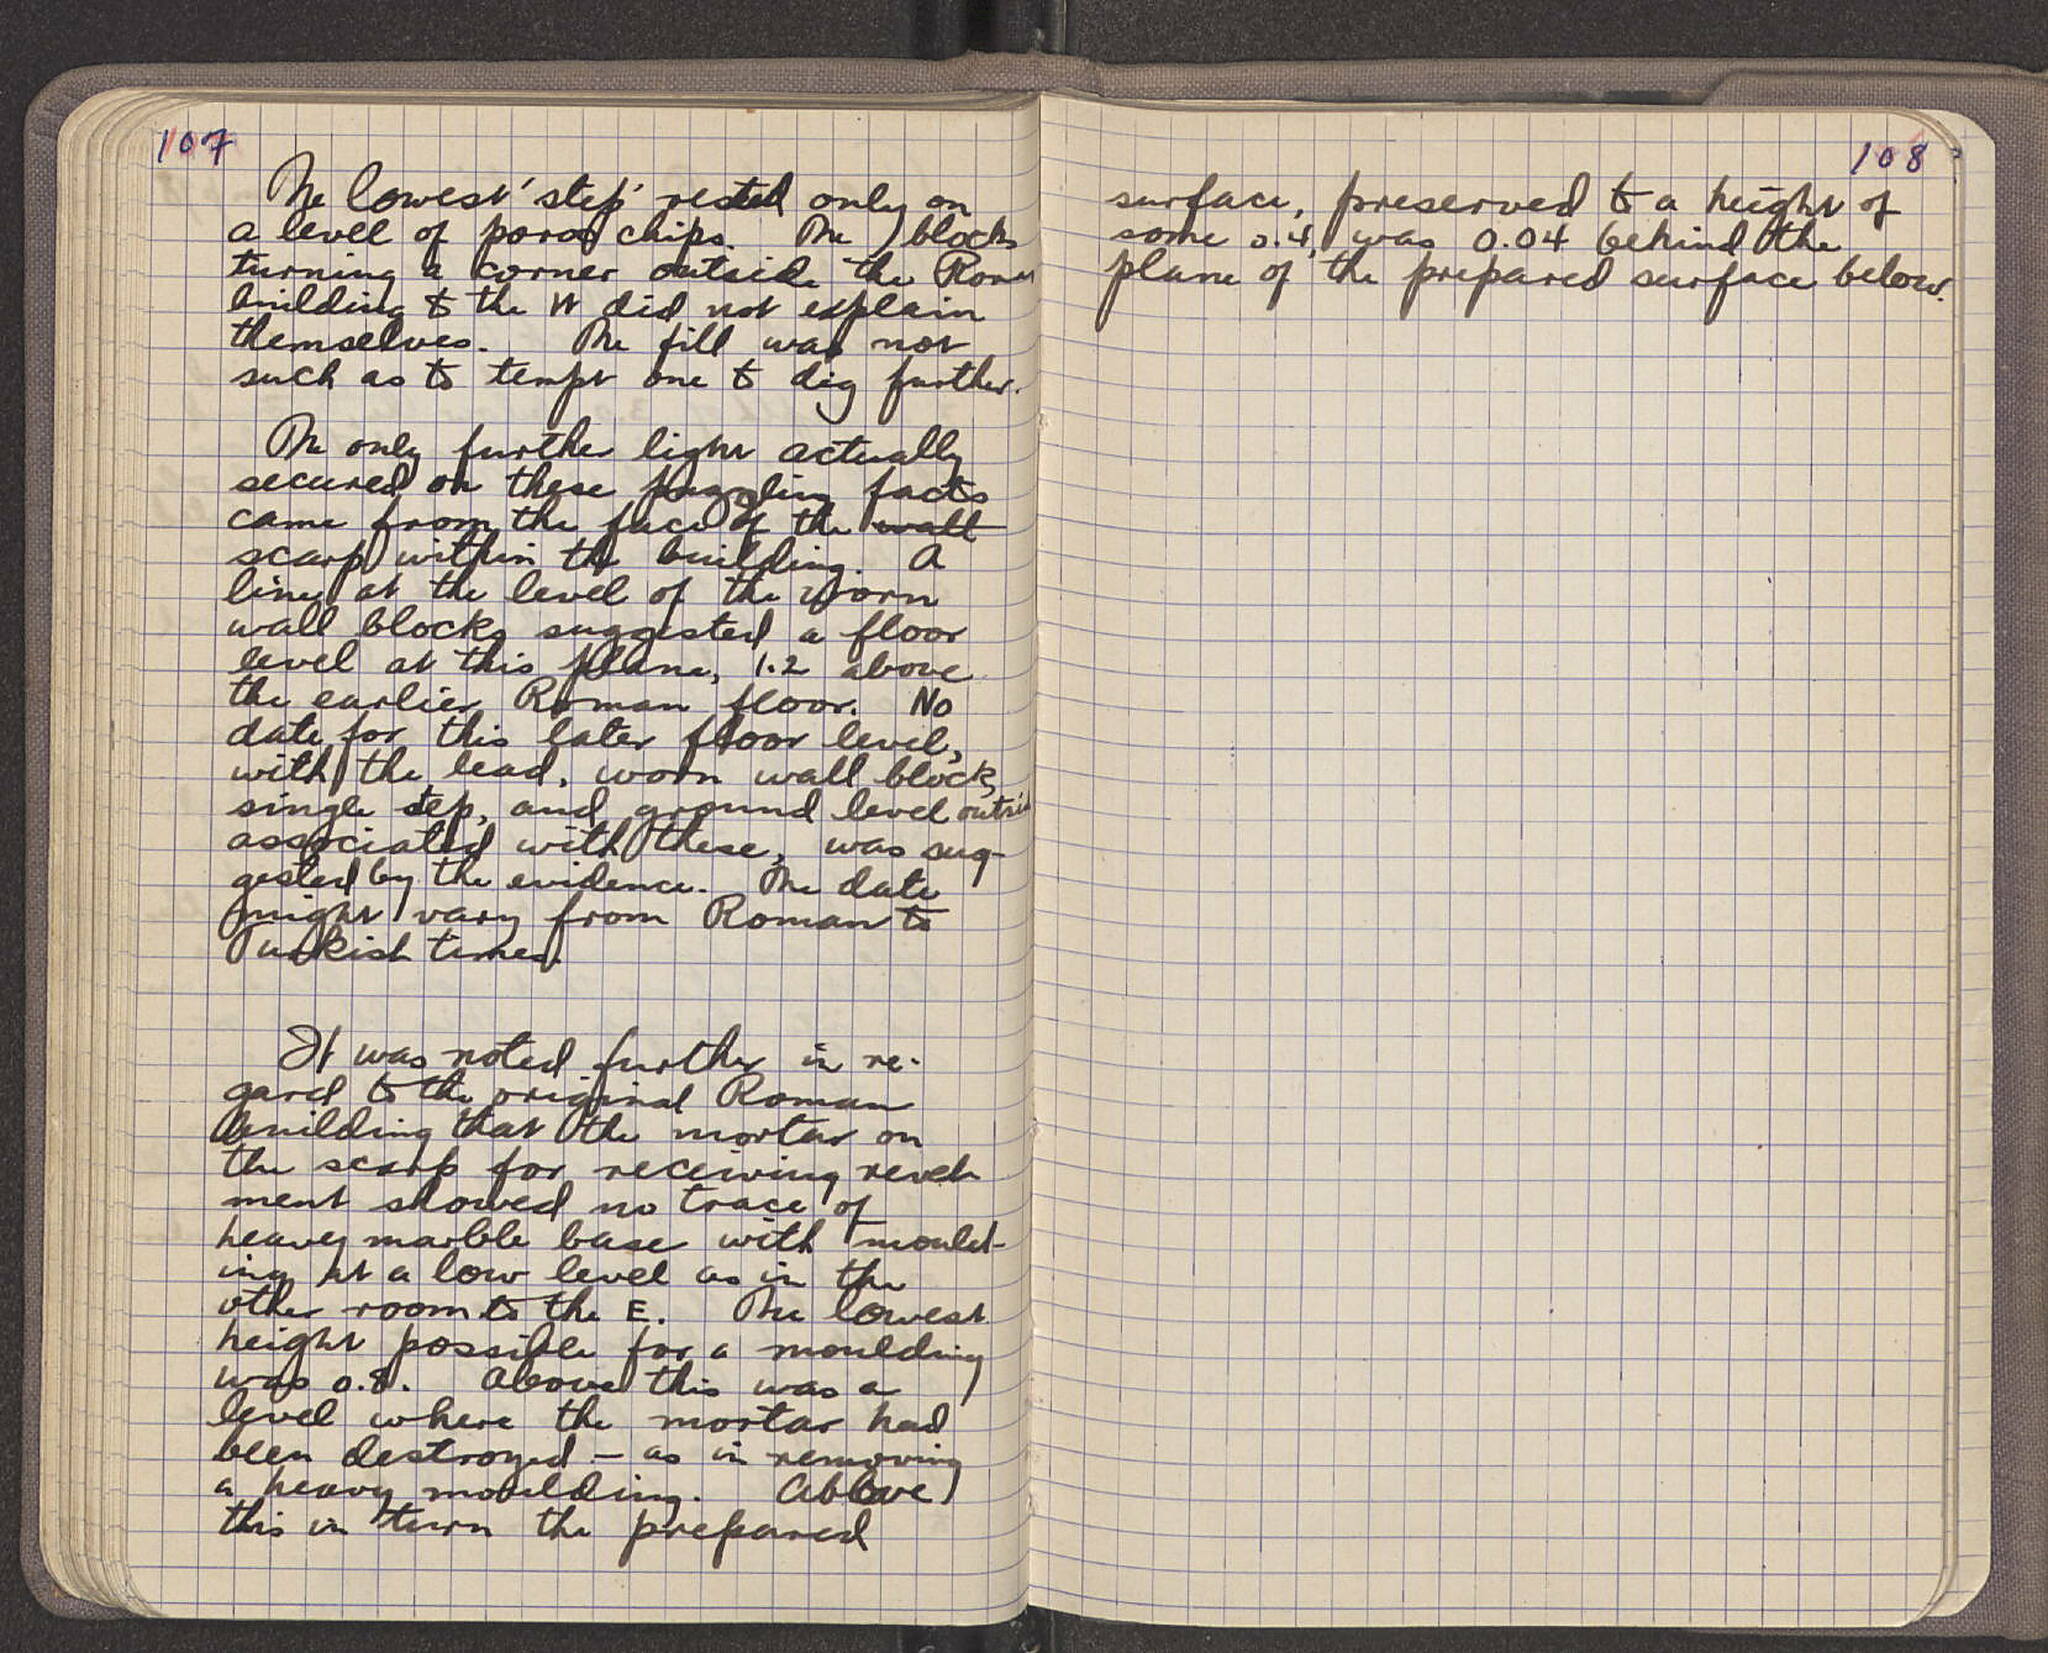 107
The lowest 'step' rested only on
a level of poros chips. The blocks
turning a corner outside the Roman
building to the W did not explain
themselves. The fill was not
such as to tempt one to dig further.
The only further light actually
secured on these puzzling facts
came from the face of the wall
scarp within the building. A
line at the level of the worn
wall blocks suggested a floor
level at this plane, 1.2 above
the earlier Roman floor. No
date for this later floor level,
with the lead, worn wall block,
single step, and ground level outside
associated with these, was sug-
gested by the evidence. The date
might vary from Roman to
Turkish times.
It was noted further in re-
gard to the original Roman
building that the mortar on
the scarp for receiving revet-
ment showed no trace of
heavy marble base with mould-
ing at a low level as in the
other room to the E. The lowest
height possible for a moulding
was 0.8. Above this was a
level where the mortar had
been destroyed – as in removing
a heavy moulding. Above
this in turn the prepared
108
surface, preserved to a height of
some 0.4, was 0.04 behind the
plane of the prepared surface below.